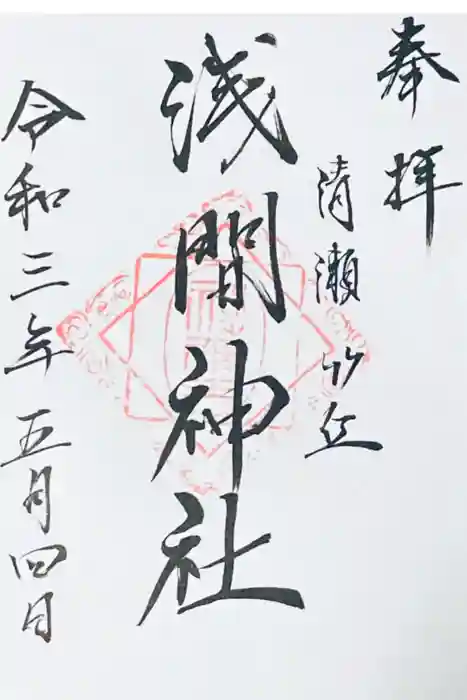 奉拝
清瀬 竹丘
浅間神社
令和三年 五月四日